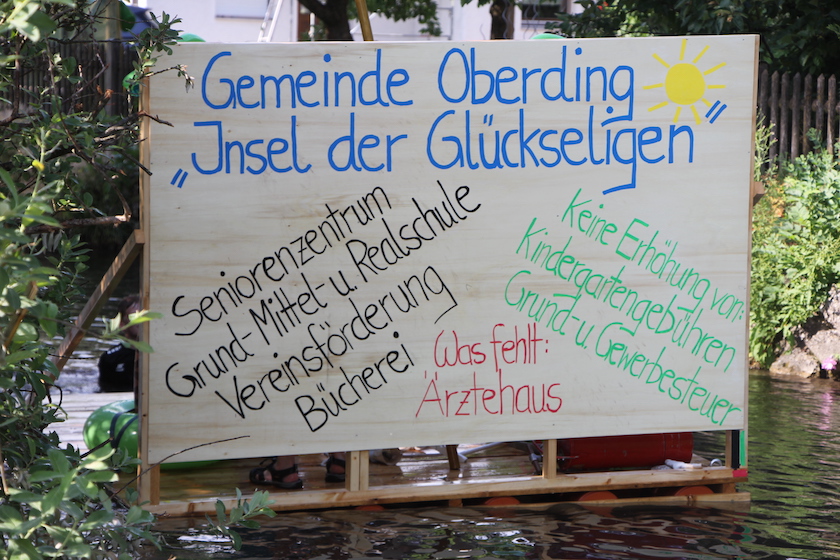 Gemeinde Oberding
"Insel der Glückseligen"
Seniorenzentrum
Grund-Mittel-u. Realschule
Vereinsförderung
Bücherei
Was fehlt:
Ärztehaus
Keine Erhöhung von:
Kindergartengebühren
Grund-u. Gewerbesteuer